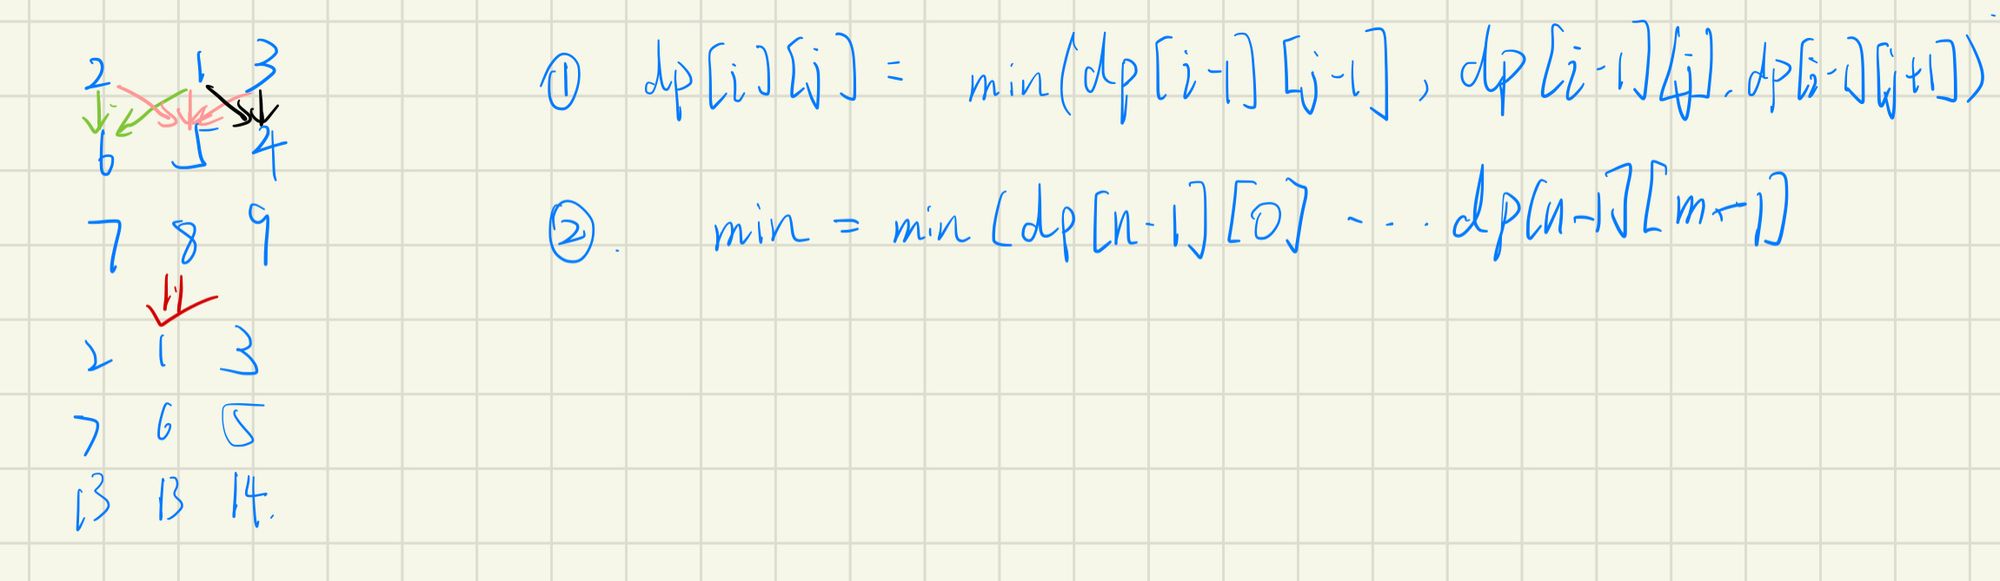 2 1 3
6 5 4
7 8 9
2 1 3
7 6 5
13 13 14.
① dp[i][j] = min(dp[i-1][j-1], dp[i-1][j], dp[i-1][j+1])
②. min = min(dp[n-1][0] ... dp[n-1][m-1]